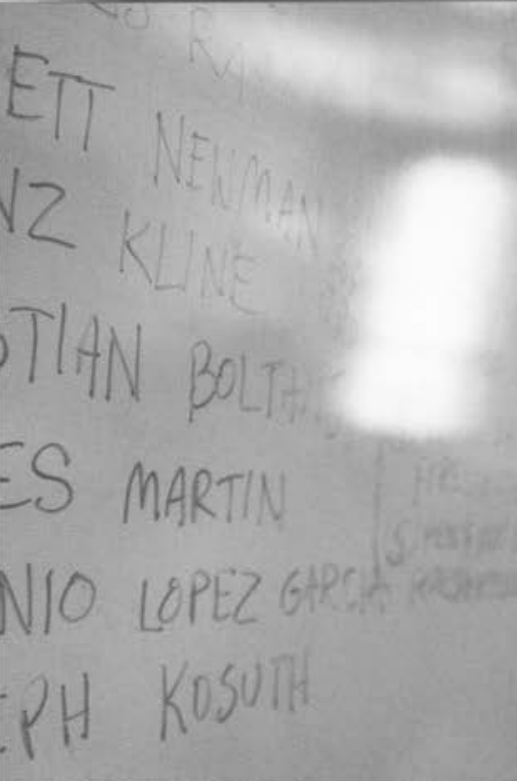 ETT NEWMAN
NZ KLINE
TIAN BOLTAN
ES MARTIN
NIO LOPEZ GARCIA
EPH KOSUTH